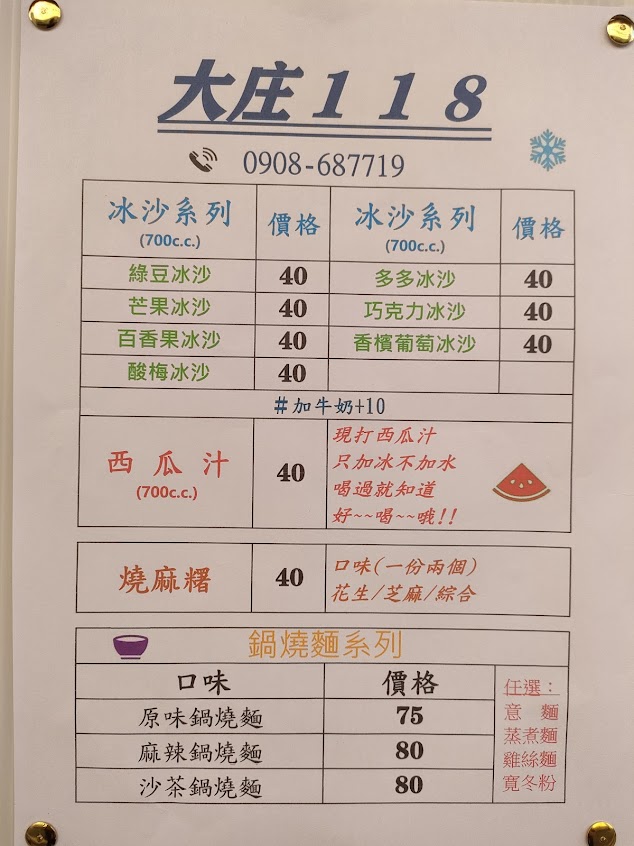 大庄118
0908-687719
冰沙系列 價格 冰沙系列 價格
(700c.c.) (700c.c.)
綠豆冰沙 40 多多冰沙 40
芒果冰沙 40 巧克力冰沙 40
百香果冰沙 40 香檳葡萄冰沙 40
酸梅冰沙 40
#加牛奶+10
西瓜汁
(700c.c.)
40
現打西瓜汁
只加冰不加水
喝過就知道
好~~喝~~哦!!
燒麻糬
40
口味(一份兩個)
花生/芝麻/綜合
鍋燒麵系列
口味 價格
原味鍋燒麵 75
麻辣鍋燒麵 80
沙茶鍋燒麵 80
任選：
意 麵
蒸煮麵
雞絲麵
寬冬粉